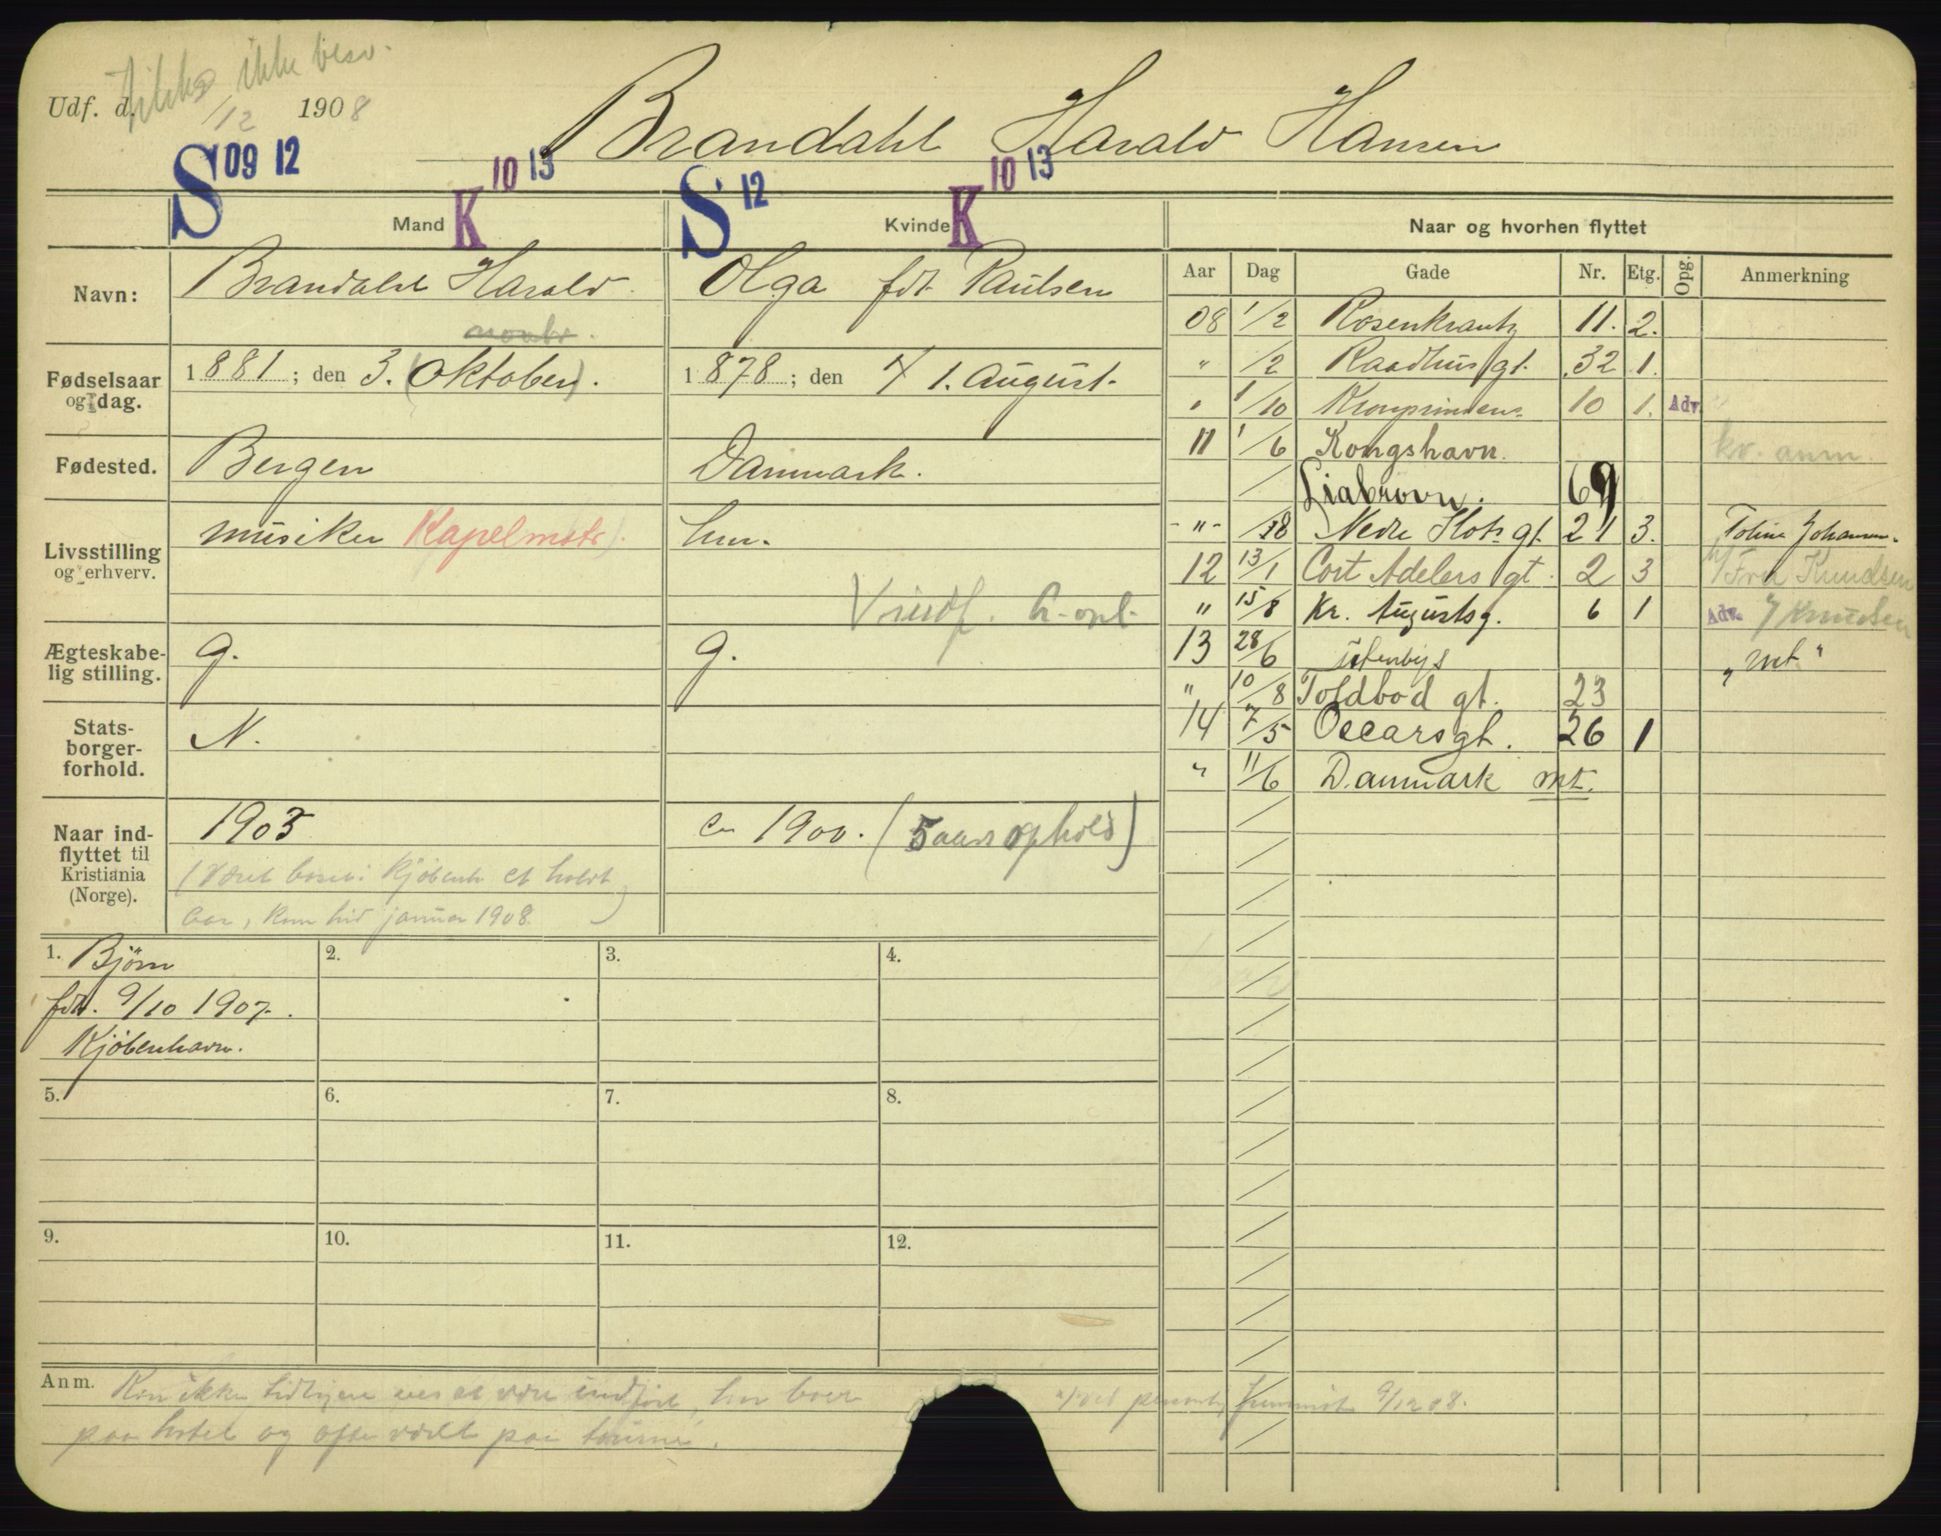 ikke besv.
Udf. d. /12 1908
Brandahl Harald Hansen
S 09 12 K 10 13 S 12 K 10 13
Mand Kvinde Naar og hvorhen flyttet
Aar Dag Gade Nr. Etg. Opg. Anmerkning
Navn: Brandahl Harald Olga fdt. Paulsen
Fødselsaar og dag. 1881; den 3. (Oktober). 1878; den 1. August.
Fødested. Bergen Danmark.
Livsstilling og erhverv. musiker Kapelmstr. hur.
Ægteskabelig stilling. g. g.
Statsborgerforhold. N.
Naar indflyttet til Kristiania (Norge). 1905 ca 1900. (5 aars ophold)
Kjøbenh. et halvt
Aar, kom hid januar 1908.
08 1/2 Rosenkrantz 11. 2.
" /2 Raadhusgt. 32 1.
" 1/10 Kronprindens 10 1. Adv.
11 1/6 Kongshavn. kv. anm.
Liabrovn. 69
-"- /18 Nedre Slots gt. 21 3. Toline Johansen.
12 13/1 Cort Adelers gt. 2 3 Fru Knudsen
" 15/8 Kr. Augustsg. 6 1 Adv. Knudsen
13 28/6 utenbys "mt"
" 10/8 Toldbod gt. 23
14 7/5 Occarsgt. 26 1
" 11/6 Danmark mt.
1. Bjørn
fdt. 9/10 1907.
Kjøbenhavn.
2. 3. 4.
5. 6. 7. 8.
9. 10. 11. 12.
Anm. Kan ikke tidligere sees at være indført, har boet
paa hotel og ofte været paa turne.
9/12 08.